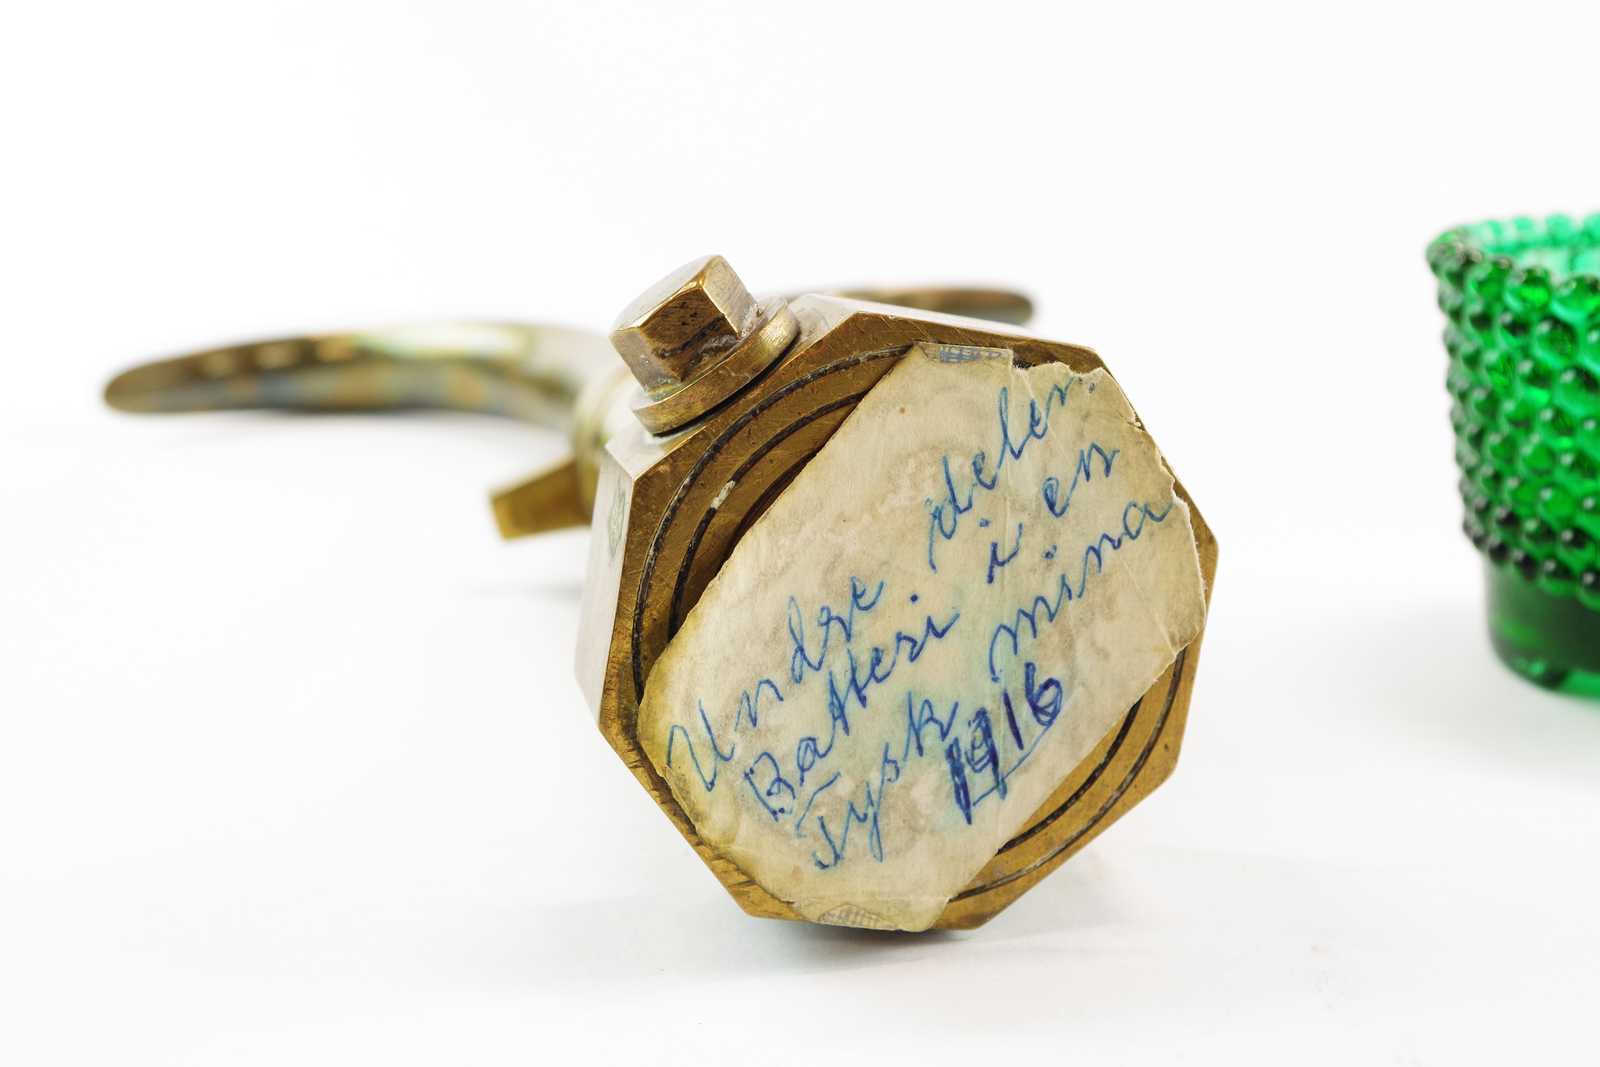 Undre delen.
Batteri i en
Tysk mina
1916